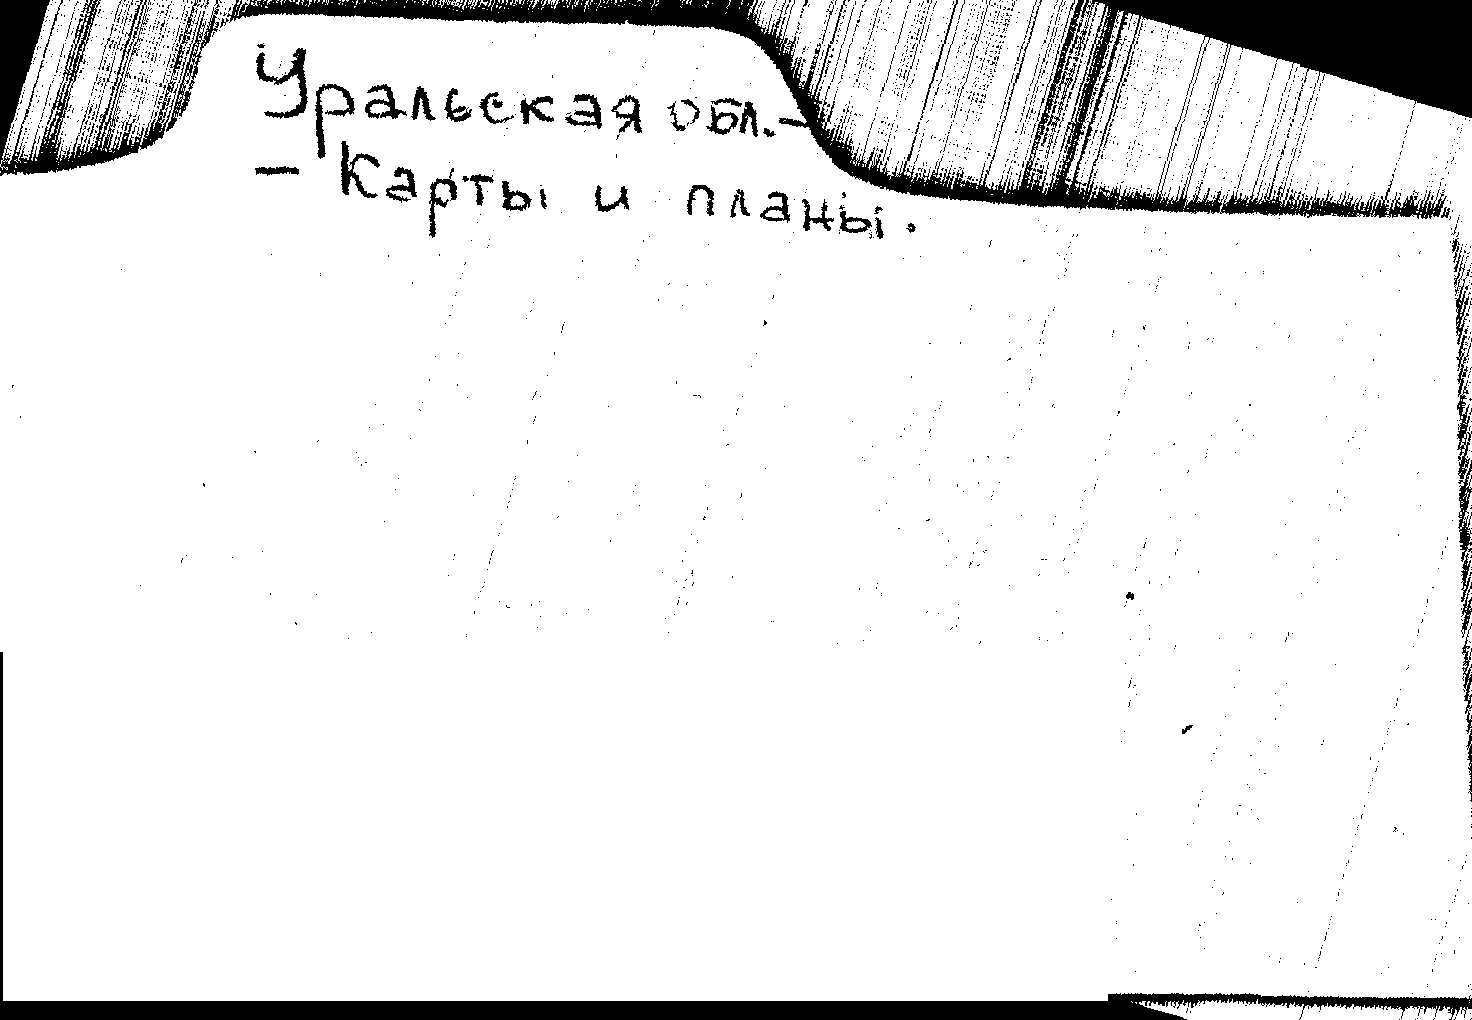 Уральская обл.-
- Карты и планы.